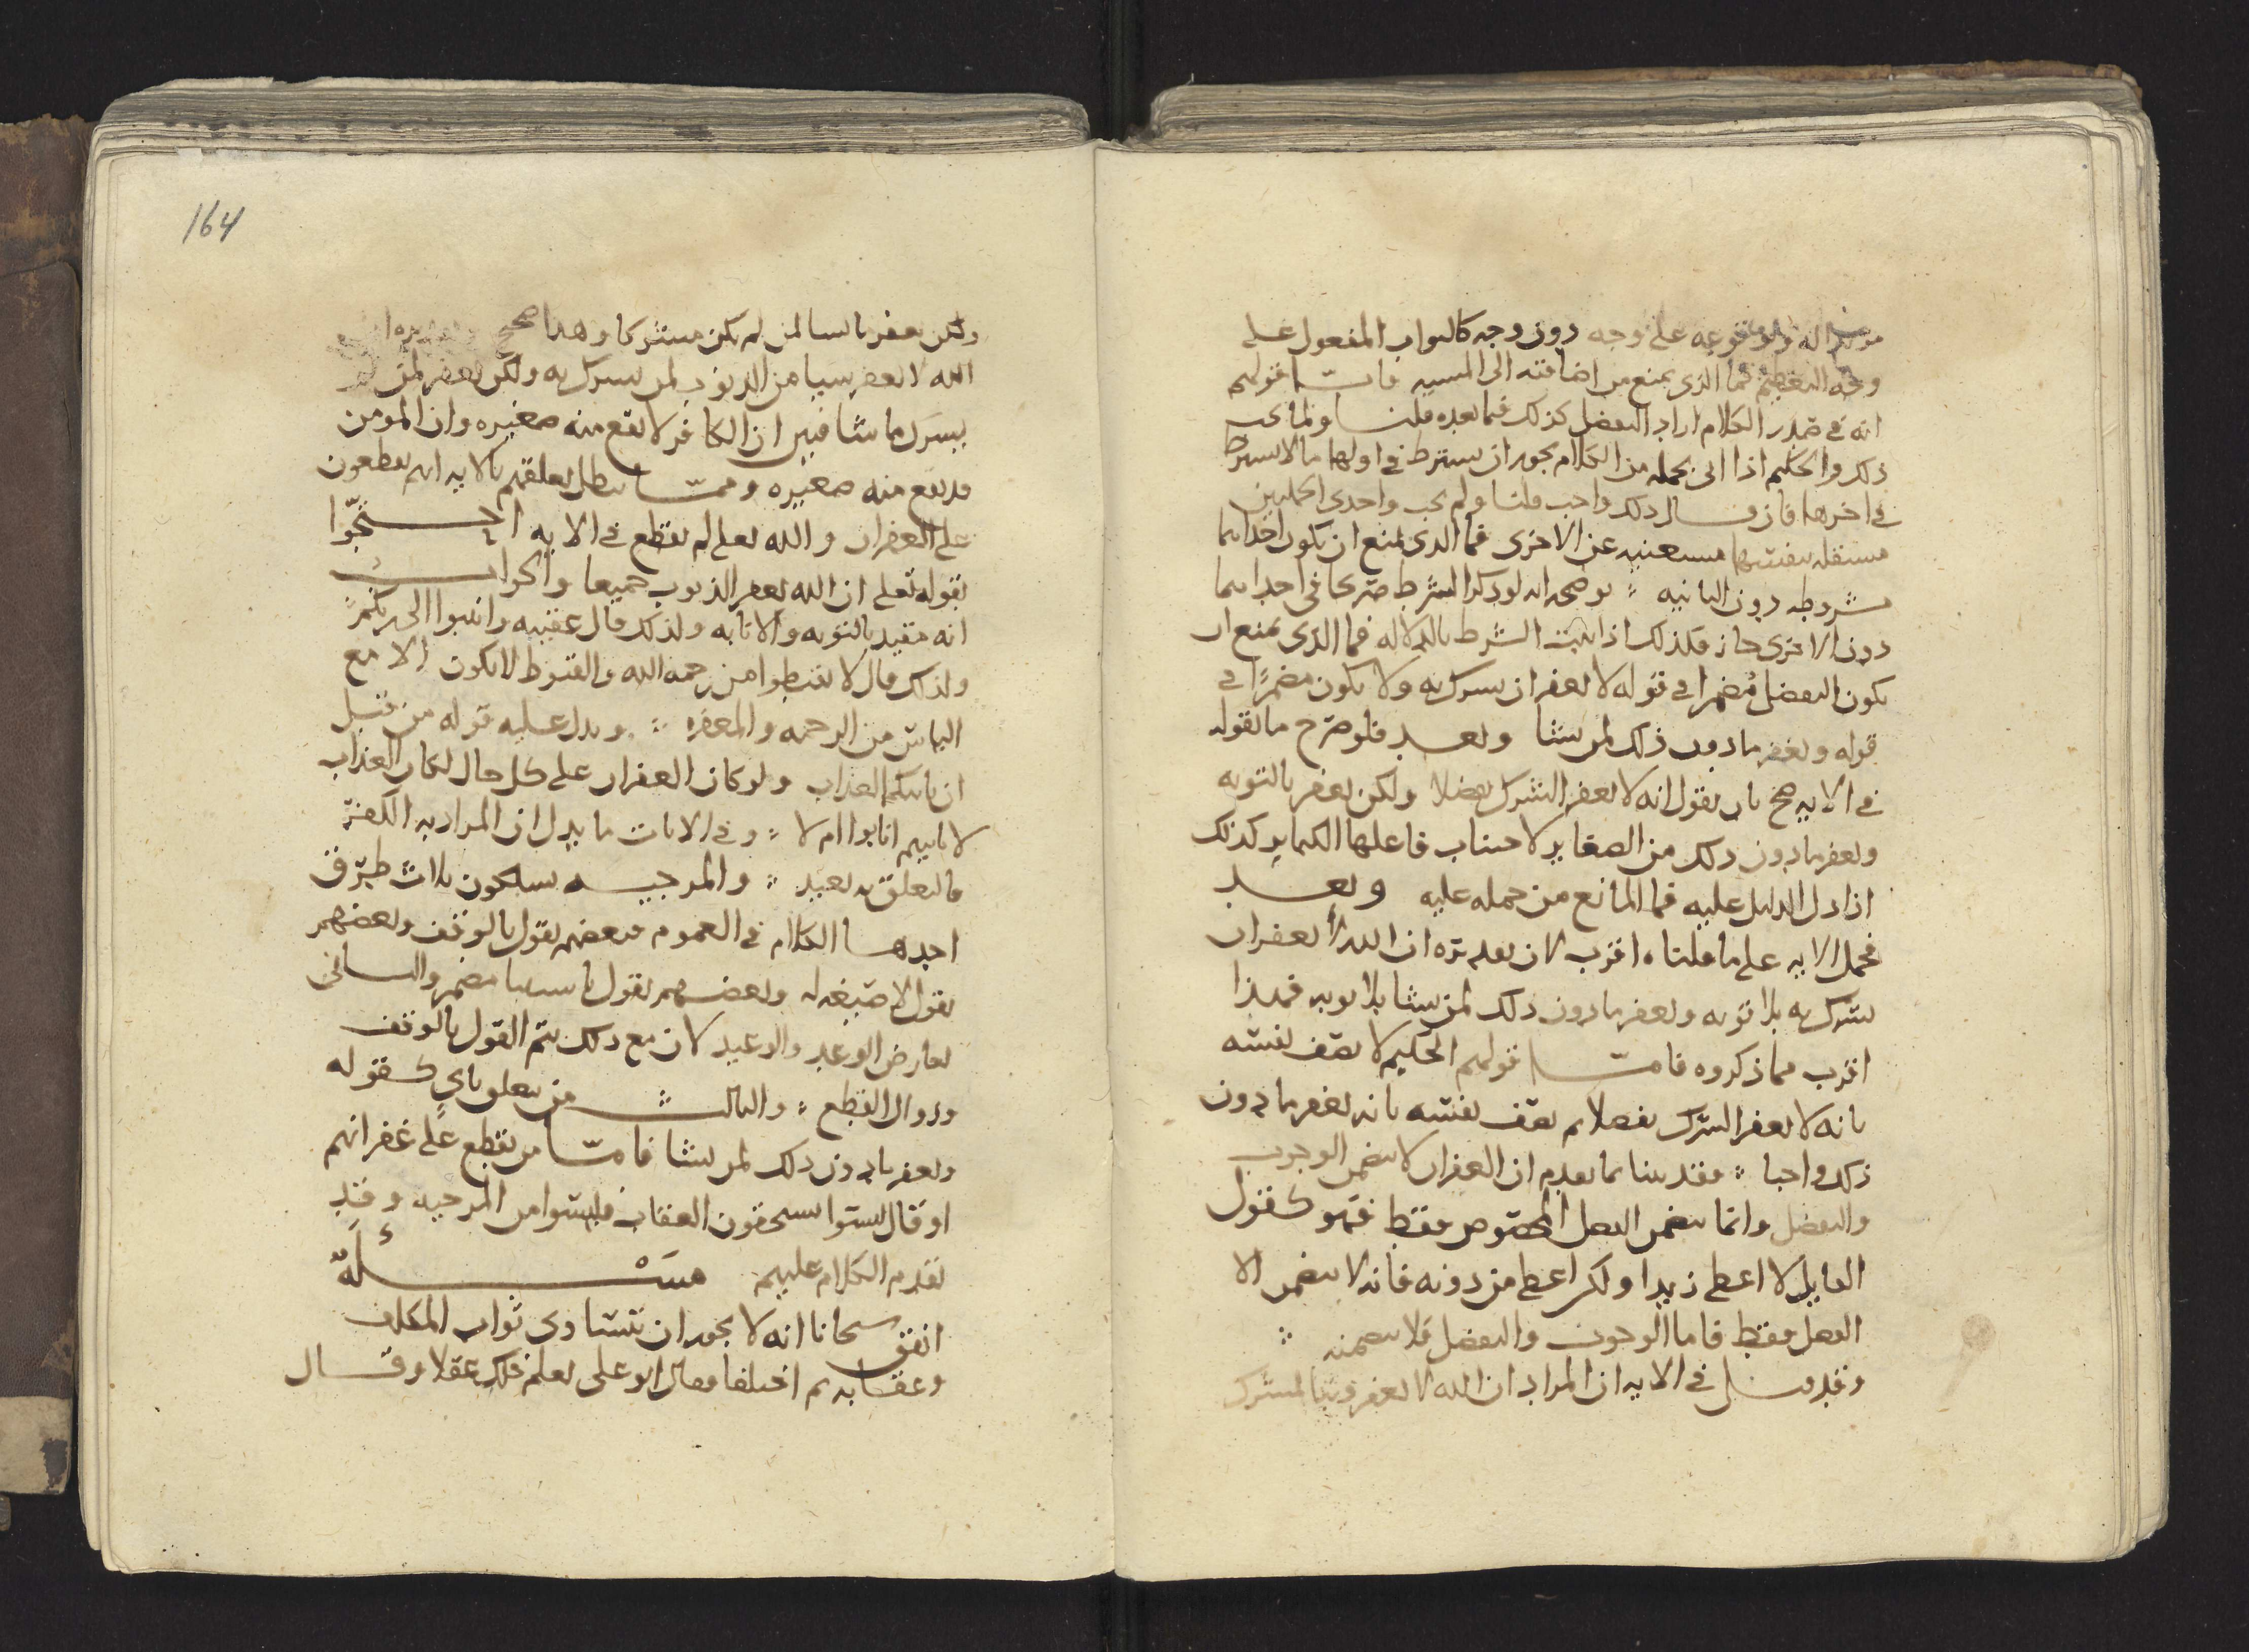 على وجه دون وجه كالثواب المفعول على
وجه التعظيم فما الذي يمنع من اضافته الى المشيه فاما قولهم
انه في صدر الكلام اراد التفضل كذلك فيما بعده قلنا ولما يجب
ذلك والحكيم اذا اتى بجمله من الكلام يجوز ان يشترط في اولها ما لا يشترط
في اخرها فان قال ذلك واجب قلنا ولم يجب واحدى الجملتين
مستقله بنفسها مستغنيه عن الاخرى فما الذي يمنع ان تكون احداهما
مشروطه دون الثانيه يوضحه انه لو ذكر الشرط صريحا في احداهما
دون الاخرى جاز فكذلك اذا اثبت الشرط بالدلاله فما الذي يمنع ان
يكون التفضل مُضمرا في قوله لا يغفر ان يشرك به ولا يكون مضمرًا في
قوله ويغفر ما دون ذلك لمن يشا وبعد فلو صرح ما نقوله
في الايه صح بان يقول انه لا يغفر الشرك تفضلا ولكن يغفر بالتوبه
ويغفر ما دون ذلك من الصغاير لاجتناب فاعلها الكباير كذلك
اذا دل الدليل عليه فما المانع من حمله عليه وبعد
فحمل الايه على ما قلناه اقرب لان تقديره ان الله لا يغفر ان
يشرك به بلا توبه ويغفر ما دون ذلك لمن يشا بلا توبه فهذا
اقرب مما ذكروه فاما قولهم الحكيم لا يصف نفسه
بانه لا يغفر الشرك تفضلا ثم يصف نفسه بانه يغفر ما دون
ذلك واجبا فقد بينا بما تقدم ان الغفران لا يتضمن الوجوب
والتفضل وانما يتضمن الفعل المخصوص فقط فهو كقول
القايل لا اعطي زيدا ولكن اعطي من دونه فانه لا يتضمن الا
الفعل فقط فاما الوجوب والتفضل فلا يتضمنه
وقد قيل في الايه ان المراد ان الله لا يغفر ذنبا لمشرك
ولكن يغفر ما يشا لمن لم يكن مشركا وهذا صحيح
الله لا يغفر شيا من الذنوب لمن يشرك به ولكن يغفر لمن
يشرك ما شا فبين ان الكافر لا تقع منه صغيره وان المومن
قد تقع منه صغيره ومما يبطل تعلقهم بالايه انهم يقطعون
على الغفران والله تعالى لم يقطع في الايه احتجّوا
بقوله تعلى ان الله يغفر الذنوب جميعا والجواب
انه مقيد بالتوبه والانابه ولذلك قال عقيبه وانيبوا الى ربكم
ولذلك قال لا تقنطوا من رحمه الله والقنوط لا يكون الا مع
الياس من الرحمه والمغفره ويدل عليه قوله من قبل
ان ياتيكم العذاب ولو كان الغفران على كل حال لكان العذاب
لا ياتيهم انابوا ام لا وفي الايات ما يدل ان المراد به الكفرة
فالتعلق به بعيد والمرجيه يسلكون ثلاث طرق
احدها الكلام في العموم فبعضهم يقول بالوقف وبعضهم
يقول لا صيغه له وبعضهم يقول باستثنا مضمر والثاني
تعارض الوعد والوعيد لان مع ذلك يتم القول بالوقف
وزوال القطع والثالث من تعلق باي كقوله
ويغفر ما دون ذلك لمن يشا فاما من يقطع على غفرانهم
او قال ليسوا يستحقون العقاب فليسوا من المرجيه وقد
تقدم الكلام عليهم مسْئَلَةٌ
اتفق شيخانا انه لا يجوز ان يتساوى ثواب المكلف
وعقابه ثم اختلفا فقال ابو على يعلم ذلك عقلا وقال
164